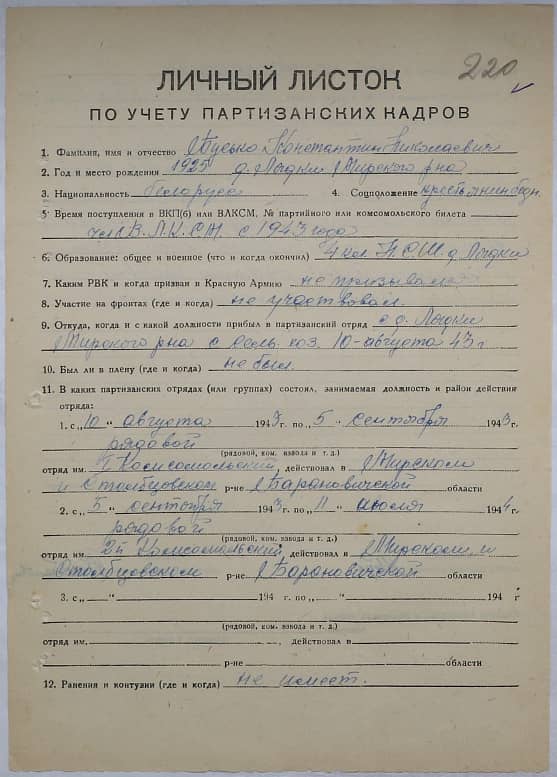 220
ЛИЧНЫЙ ЛИСТОК
ПО УЧЕТУ ПАРТИЗАНСКИХ КАДРОВ
1. Фамилия, имя и отчество Бусько Константин Николаевич
2. Год и место рождения 1925 д. Лядки Мирского р-на
3. Национальность белоруса 4. Соцположение крестьянин бедн.
5 Время поступления в ВКП(б) или ВЛКСМ, № партийного или комсомольского билета
чл. В.Л.К.С.М. с 1943 года
6. Образование: общее и военное (что и когда окончил) 4 кл. Н.С.Ш. д. Лядки
7. Каким РВК и когда призван в Красную Армию не призывался
8. Участие на фронтах (где и когда) не участвовал.
9. Откуда, когда и с какой должности прибыл в партизанский отряд с д. Лядки
Мирского р-на с сель. хоз. 10-августа 43 г
10. Был ли в плену (где и когда) не был.
11. В каких партизанских отрядах (или группах) состоял, занимаемая должность и район действия
отряда:
1. с „10 “ августа 1943 г. по „ 5 “ сентября 1943 г.
рядовой
(рядовой, ком. взвода и т. д.)
отряд им. Комсомольский, действовал в Мирском
и Столбцовском р-не Барановичской области
2. с „ 5 “ сентября 1943 г. по „ 11 “ июля 1944 г.
рядовой
(рядовой, ком. взвода и т. д.)
отряд им. 2й Комсомольский, действовал в Мирском и
Столбцовском р-не Барановичской области
3. с „ “ 194 г. по „ “ 194 г
(рядовой, ком. взвода и т. д.)
отряд им. , действовал в
р-не области
12. Ранения и контузии (где и когда) не имеет.